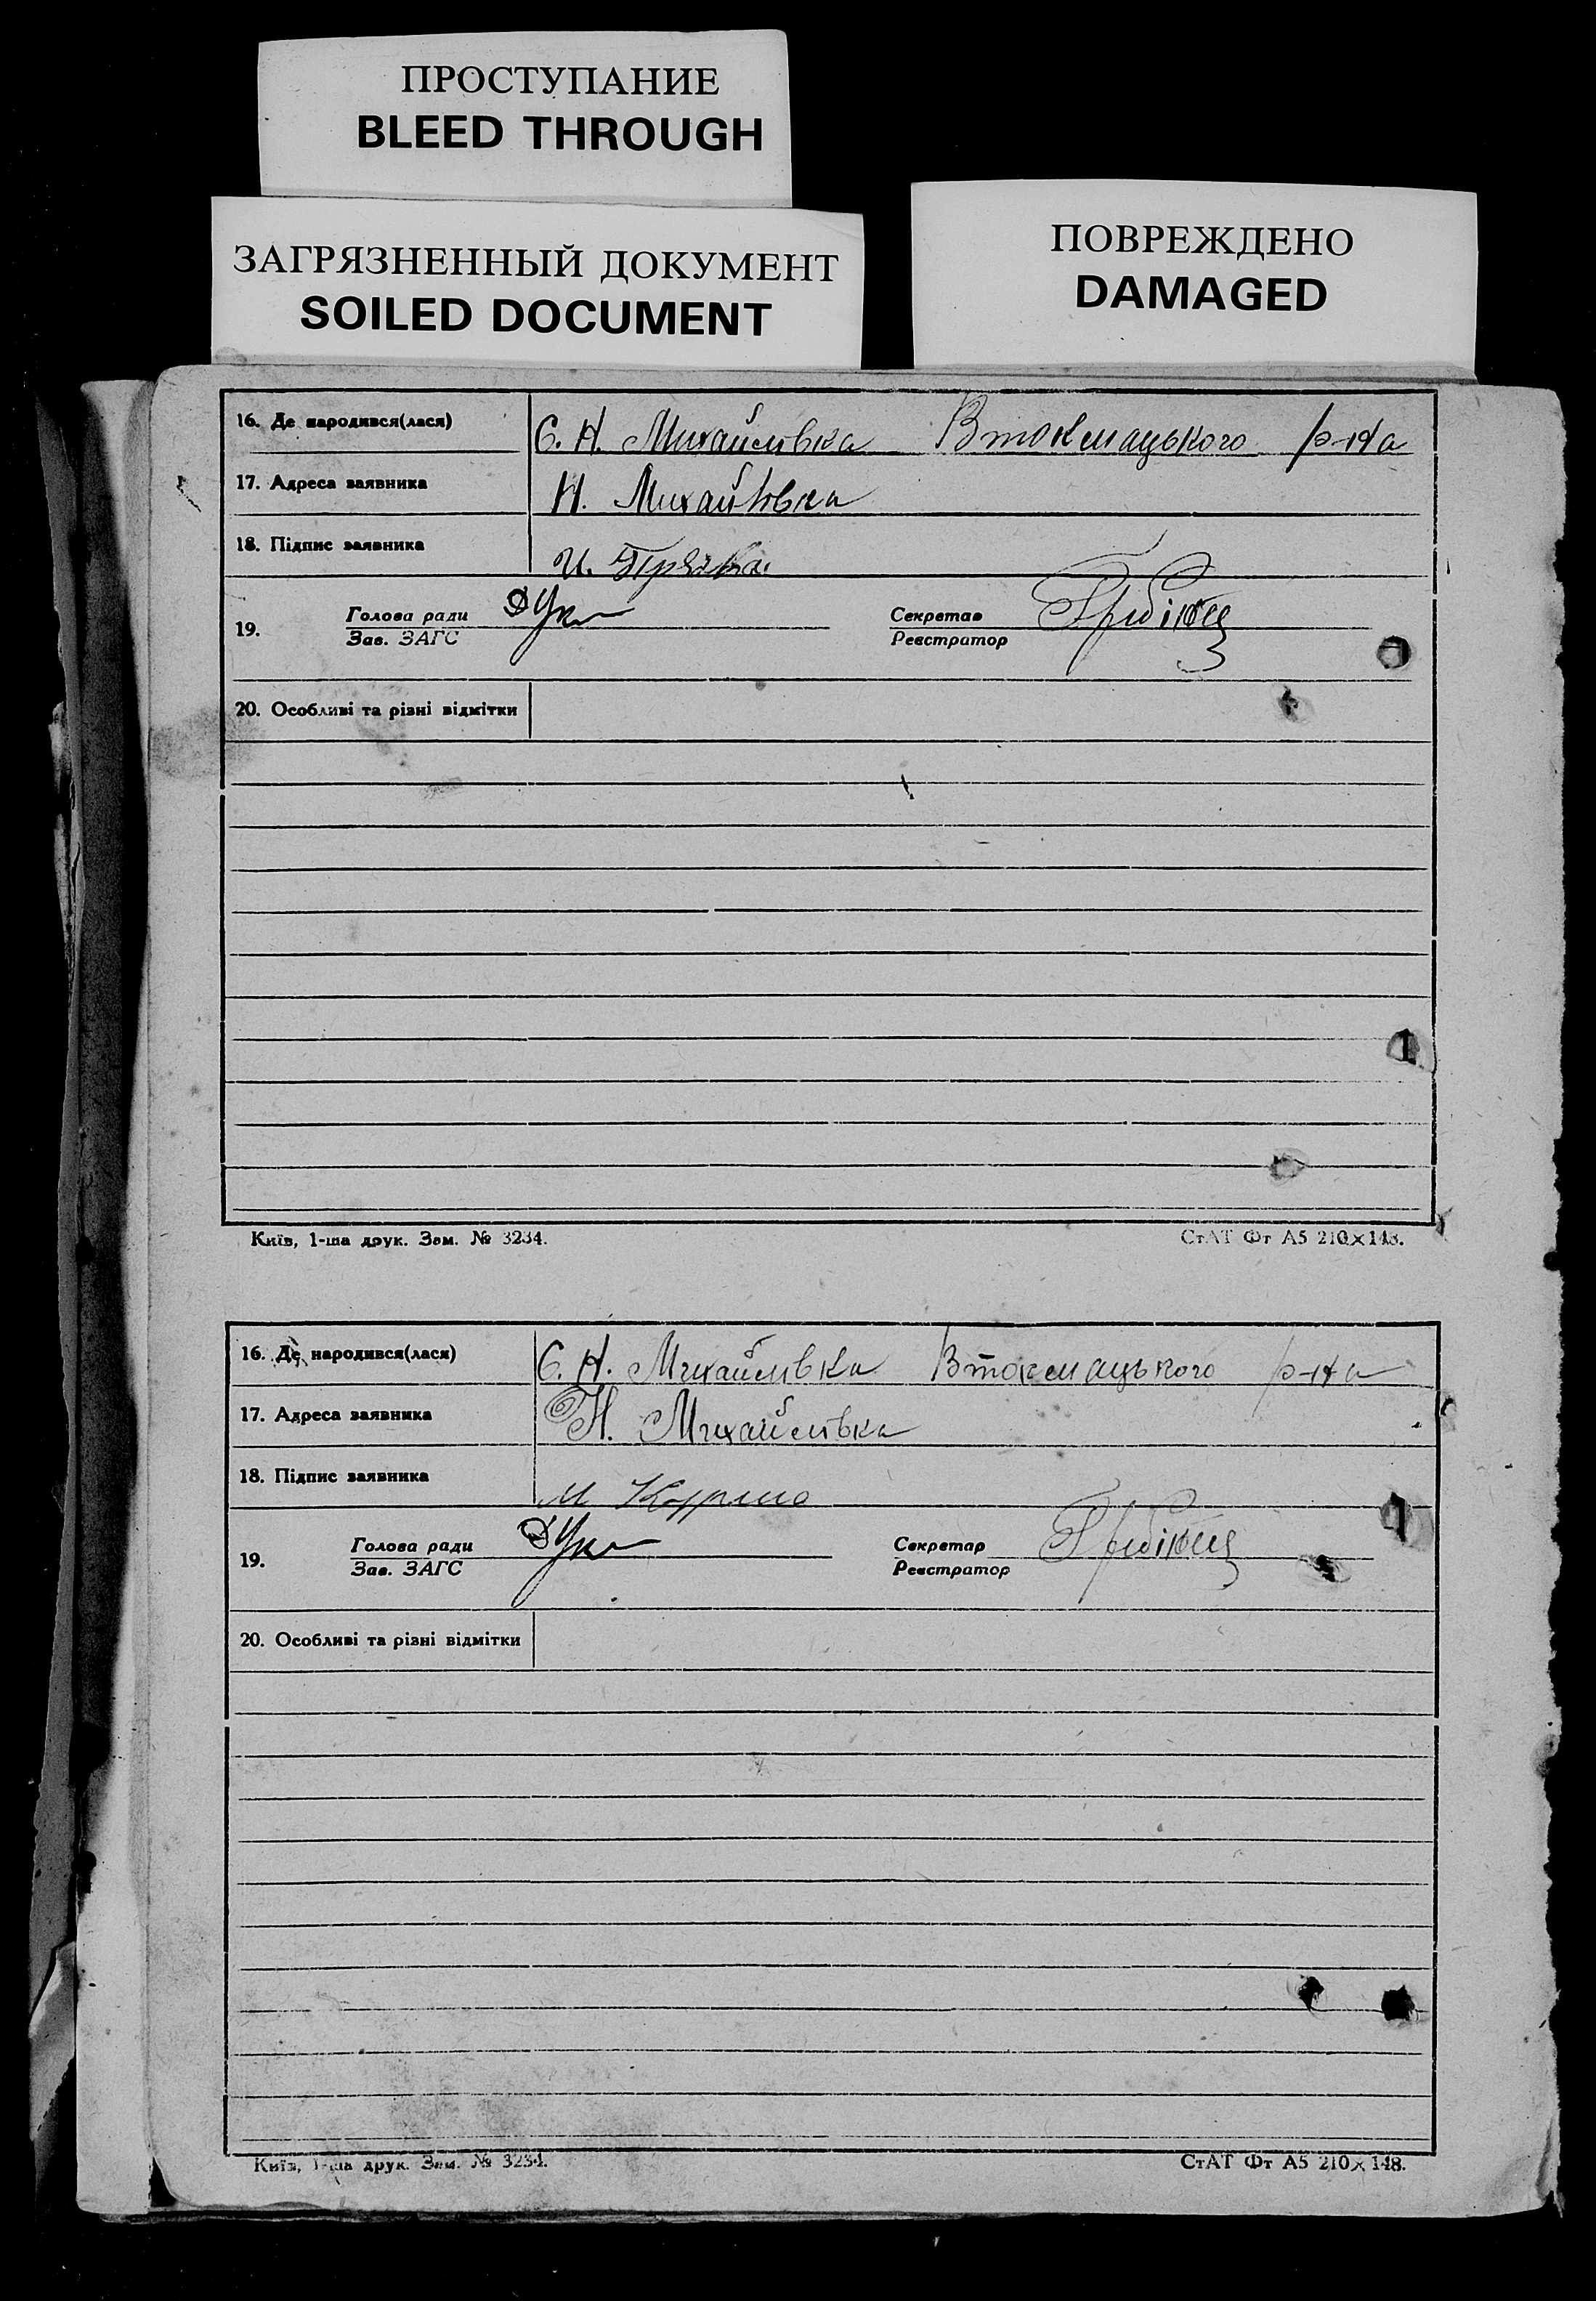 ПРОСТУПАНИЕ
BLEED THROUGH
ЗАГРЯЗНЕННЫЙ ДОКУМЕНТ
SOILED DOCUMENT
ПОВРЕЖДЕНО
DAMAGED
16. Де народився(лася) С. Н. Михайлівка Втокмацького р-на
17. Адреса заявника Н. Михайлівка
18. Підпис заявника И.
19. Голова ради Секретар
Зав. ЗАГС Реєстратор
20. Особливі та різні відмітки
Київ, 1-ша друк. Зам. № 3234. СтАТ Фт А5 210×148.
16. Де народився(лася) С. Н. Михайлівка Втокмацького р-на
17. Адреса заявника Н. Михайлівка
18. Підпис заявника М
19. Голова ради Секретар
Зав. ЗАГС Реєстратор
20. Особливі та різні відмітки
Київ, 1-ша друк. Зам. № 3234. СтАТ Фт А5 210×148.